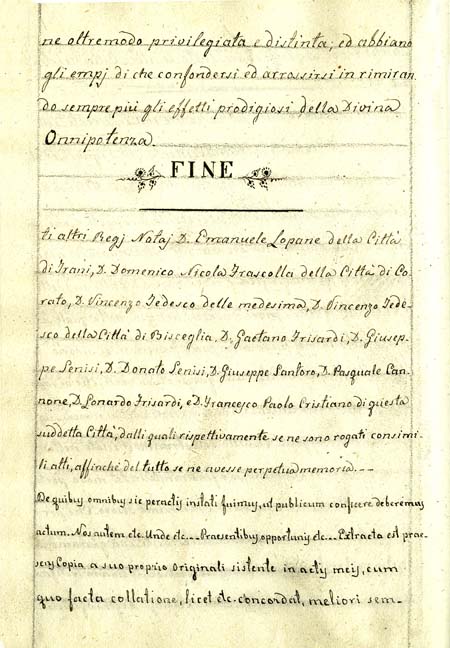 ne oltremodo privilegiata e distinta; ed abbiano
gli empj di che confondersi ed arrossirsi in rimiran
do sempre più gli effetti prodigiosi della Divina
Onnipotenza.
FINE
ti altri Regj Notaj D. Emanuele Lopane della Città
di Trani, D. Domenico Nicola Frascolla della Città di Co-
rato, D. Vincenzo Tedesco delle medesima, D. Vincenzo Tede-
sco della Città di Bisceglia, D. Gaetano Frisardi, D. Giusep-
pe Senisi, D. Donato Senisi, D. Giuseppe Santoro, D. Pasquale Can-
none, D. Lonardo Frisardi, e D. Francesco Paolo Cristiano di questa
suddetta Città, dalli quali rispettivamente se ne sono rogati consimi-
li atti, affinchè del tutto se ne avesse perpetua memoria. ---
De quibus omnibus sic peractis instati fuimus, ut publicum conficere deberemus
actum. Nos autem etc. Unde etc -- Praesentibus opportunis etc -- Extracta est prae-
sens Copia a suo proprio originali sistente in actis meis, cum
quo facta collatione, licet etc. concordat, meliori sem-